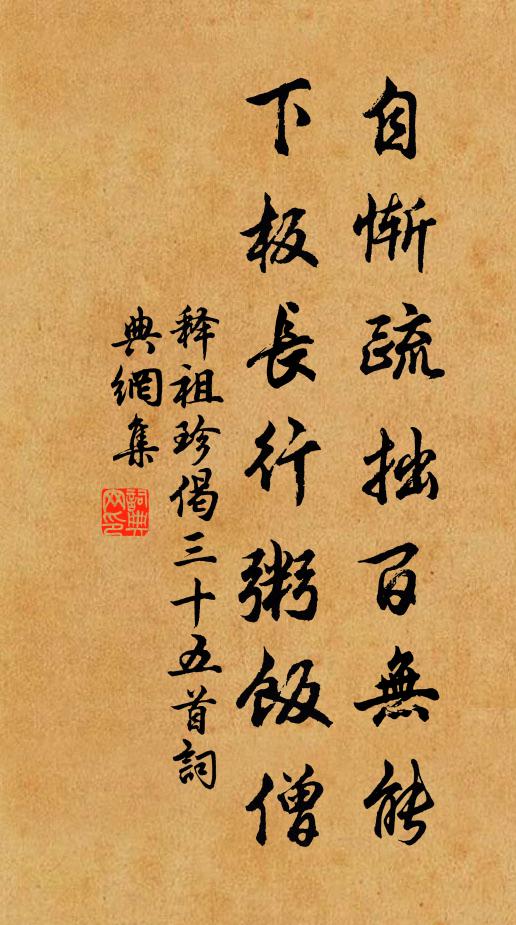 自慚疏拙百無能
下板長行粥飯僧
釋祖珍偈三十五首詞
典網集
詞典
网印